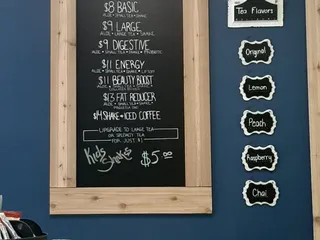 $8 BASIC
ALOE • SMALL TEA • SHAKE
$9 LARGE
ALOE • LARGE TEA • SHAKE
$9 DIGESTIVE
ALOE • SMALL TEA • SHAKE • PROBIOTIC
$11 ENERGY
ALOE • SMALL TEA • SHAKE • LIFTOFF
$11 BEAUTY BOOST
$13 FAT REDUCER
ALOE • SMALL TEA • SHAKE
$14 SHAKE + ICED COFFEE
UPGRADE TO LARGE TEA
OR SPECIALTY TEA
FOR JUST $1
Kids Shakes $5.00
Tea Flavors
Original
Lemon
Peach
Raspberry
Chai